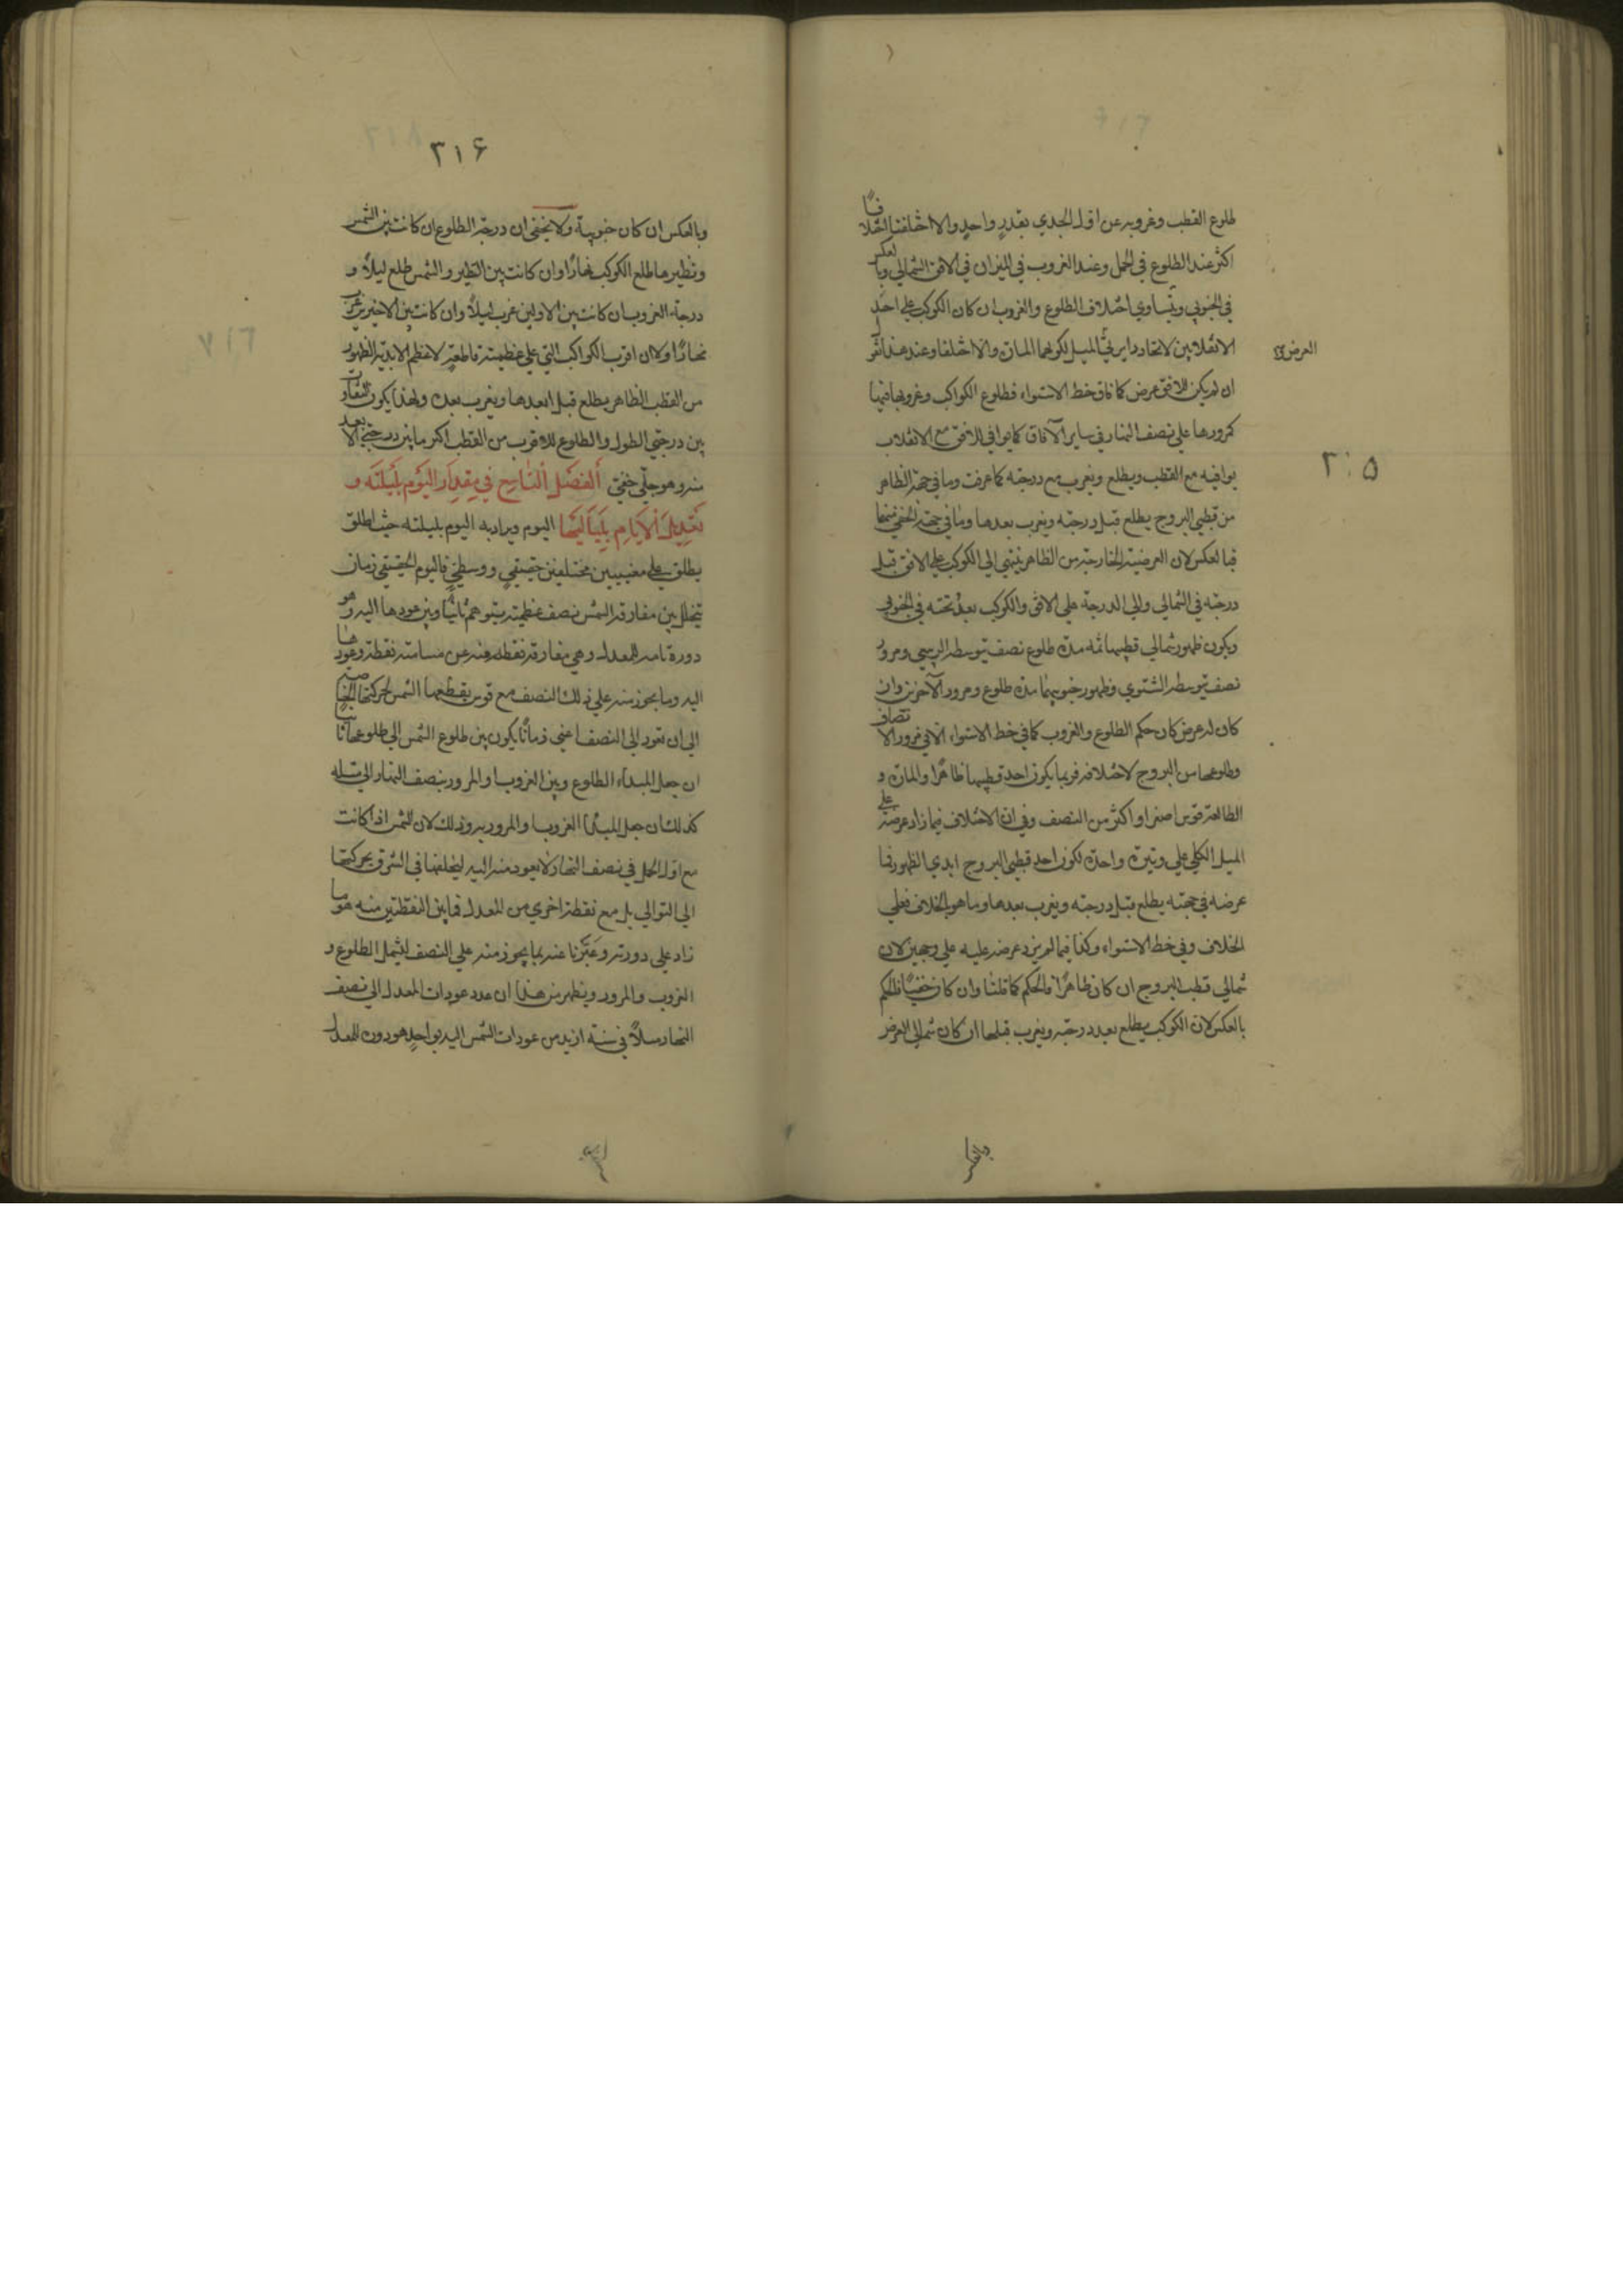 طلوع القطب وغروبه عن اول الجدي بقدر واحد والا اختلفتا اختلافا
اكثر عند الطلوع في الحمل وعند الغروب في الميزان في الافق الشمالي وبالعكس
في الجنوبي ويتساوى اختلاف الطلوع والغروب ان كان الكوكب على احد
الانقلابين لاتحاد دايرتي الميل لكونهما المارة والا اختلفا وعند هذا نقول
العرض
ان لم يكن للافق عرض كافاق خط الاستواء فطلوع الكواكب وغروبها فيها
كمرورها على نصف النهار في ساير الآفاق كما يوافي للافق مع الانقلاب
٣١٥
يوافيه مع القطب ويطلع ويغرب مع درجته كما عرفت وما في جهة الظاهر
من قطبي البروج يطلع قبل درجته ويغرب بعدها وما في جهة الخفي منهما
فبالعكس لان العرضية الخارجة من الظاهر ينتهي الى الكوكب على الافق قبل
درجته في الشمالي والى الدرجة على الافق والكوكب بعد تحته في الجنوبي
ويكون ظهور شمالي قطبيها ثمه مدة طلوع نصف يتوسطه الربيعي ومرور
نصف يتوسطه الشتوي وظهور جنوبيهما مدة طلوع ومرور الآخرين وان
كان له عرض كان حكم الطلوع والغروب كما في خط الاستواء الا في مرور الانصاف
وطلوعها من البروج لاختلافه فربما يكون احد قطبيها ظاهرا والمارة و
الطالعة قوس اصغر او اكثر من النصف وفي ان الاختلاف فيما زاد عرضه على
الميل الكلي على وتيرة واحدة لكون احد قطبي البروج ابدي الظهور فما
عرضه في جهته يطلع قبل درجته ويغرب بعدها وما هو بالخلاف فعلى
الخلاف وفي خط الاستواء وكذا فيما لم يزد عرضه عليه على وجهين لان
شمالي قطب البروج ان كان ظاهرا فالحكم كما قلنا وان كان خفيا فالحكم
بالعكس لان الكوكب يطلع بعد درجته ويغرب قبلها ان كان شمالي العرض
وبالعكس
٣١۶
وبالعكس ان كان جنوبية ولا يخفى ان درجة الطلوع ان كانت بين الشمس
ونظيرها طلع الكوكب نهارا وان كانت بين النظير والشمس طلع ليلا و
درجة الغروب ان كانت بين الاولين غرب ليلا وان كانت بين الاخيرين غرب
نهارا ولان اقرب الكواكب التي على عظيمة قاطعة لاعظم الابدية الظهور
من القطب الظاهر يطلع قبل ابعدها ويغرب بعده ولهذا يكون التفاوت
بين درجتي الطول والطلوع للاقرب من القطب اكثر مما بين درجتي الابعد
منه وهو جلي خفي الفصل التاسع في مقدار اليوم بليلته و
تعديل الايام بلياليها اليوم ويراد به اليوم بليلته حيث اطلق
يطلق على معنيين مختلفين حقيقي ووسطي فاليوم الحقيقي زمان
يتخلل بين مفارقة الشمس نصف عظيمة يتوهم ثابتا وبين عودها اليه وهو
دورة تامة للمعدل وهي مفارقة نقطة منه عن مسامتة نقطة وعودها
اليه وما يجوز منه على ذلك النصف مع قوس يقطعها الشمس لحركتها الخاصية
الى ان تعود الى النصف اعني زمانا يكون بين طلوع الشمس الى طلوعها ثانيا
ان جعل المبداء الطلوع وبين الغروب او المرور بنصف النهار الى مثله
كذلك ان جعل المبداء الغروب او المرور به وذلك لان الشمس اذا كانت
مع اول الحمل في نصف النهار لا يعود معه اليه لتخلفها في الشرق بحركتها
الى التوالي بل مع نقطة اخرى من المعدل فما بين النقطتين منه هو ما
زاد على دورته وعبرنا عنه بما يجوز منه على النصف ليشمل الطلوع و
الغروب والمرور ويظهر من هذا ان عدد عودات المعدل الى نصف
النهار مثلا في سنة ازيد من عودات الشمس اليه بواحد هو دورة المعدل